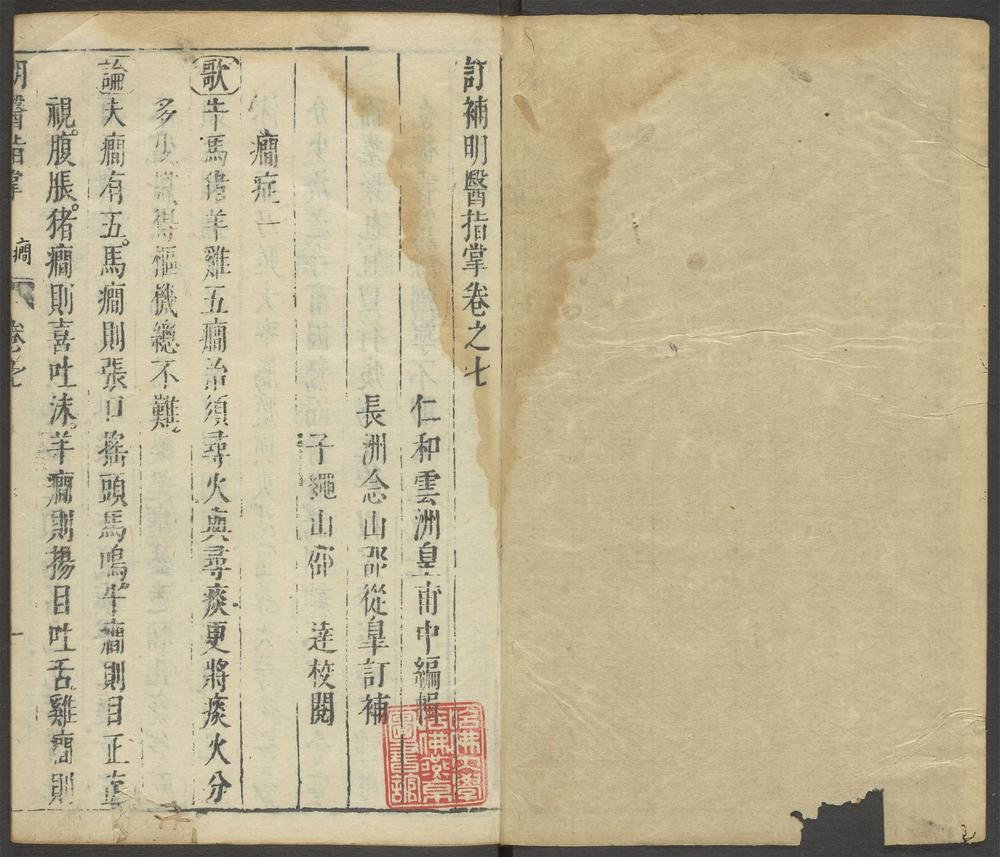 訂補明醫指掌卷之七
仁和雲洲皇甫中編輯
長洲念山邵從臯訂補
子繩山邵達校閱
癎症一
歌 牛馬猪羊雞五癎治須尋火與尋痰更將痰火分
多少 樞機總不難
論 夫癎有五馬癎則張口搖頭馬鳴牛癎則目正直
視腹脹猪癎則喜吐沫羊癎則揚目吐舌雞癎則
明醫指掌 癎 卷七 一
哈佛大學哈佛燕京圖書館